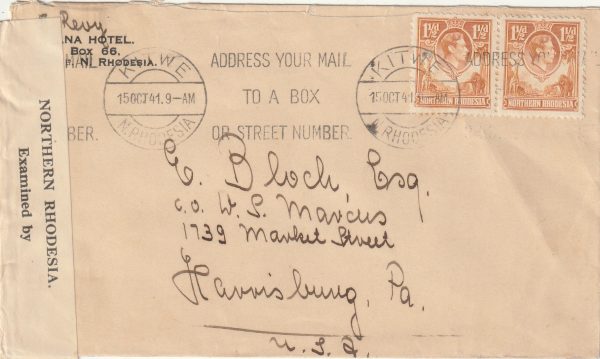 Revy
ANA HOTEL.
Box 66.
N. RHODESIA.
KITWE
15OCT41.9-AM
N.RHODESIA
ADDRESS YOUR MAIL
TO A BOX
OR STREET NUMBER.
KITWE
15OCT41.9-AM
N.RHODESIA
ADDRESS YOUR
BER.
1½d 1½d
NORTHERN RHODESIA
1½d 1½d
NORTHERN RHODESIA
NORTHERN RHODESIA.
Examined by
E. Bloch Esq.
c.o. W. S. Marcus
1739 Market Street
Harrisburg, Pa.
U.S.A.